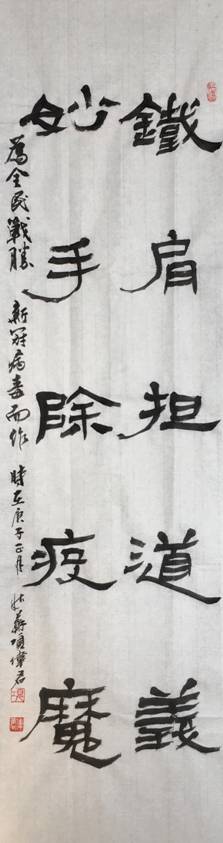 鐵肩担道義
妙手除疫魔
為全民戰勝 新冠病毒而作 時在庚子正月